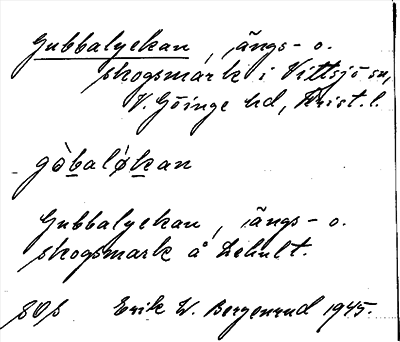 Gubbalyckan, ängs- o.
skogsmark i Vittsjö sn,
V. Göinge hd, Krist. l.
gòbalǿkan
Gubbalyckan, ängs- o.
skogsmark å Lehult.
Erik W. Bergenrud 1945.